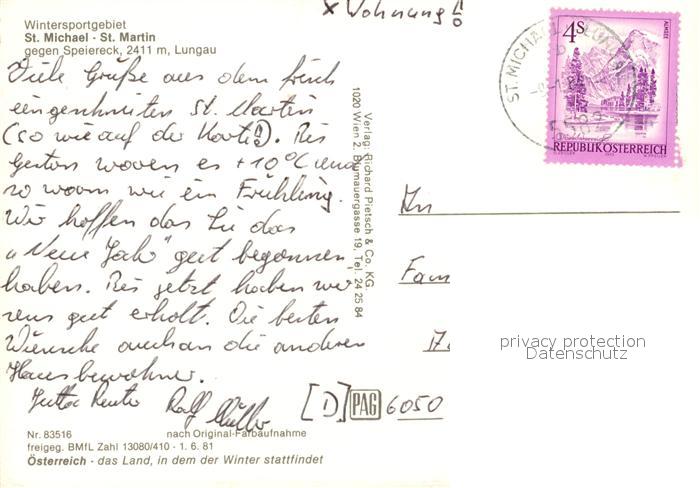 x Wohnung!!
Wintersportgebiet
St. Michael - St. Martin
gegen Speiereck, 2411 m, Lungau
Viele Grüße aus dem frisch
eingeschneiten St. Martin
(so wie auf der Karte!). Bis
Gestern waren es +10°C und
so warm wie ein Frühling.
Wir hoffen das Sie das
"Neue Jahr" gut begonnen
haben. Bis jetzt haben wir
uns gut erholt. Die besten
Wünsche auch an die anderen
Hausbewohner.
Jutta Ralf
Verlag: Richard Pietsch & Co. KG.
1020 Wien 2, Blumauergasse 19, Tel. 24 25 84
4S
ALMSEE
REPUBLIK ÖSTERREICH
ST. MICHAEL
An
Fam
privacy protection
Datenschutz
[D] PAG 6050
Nr. 83516 nach Original-Farbaufnahme
freigeg. BMfL Zahl 13080/410 - 1. 6. 81
Österreich - das Land, in dem der Winter stattfindet